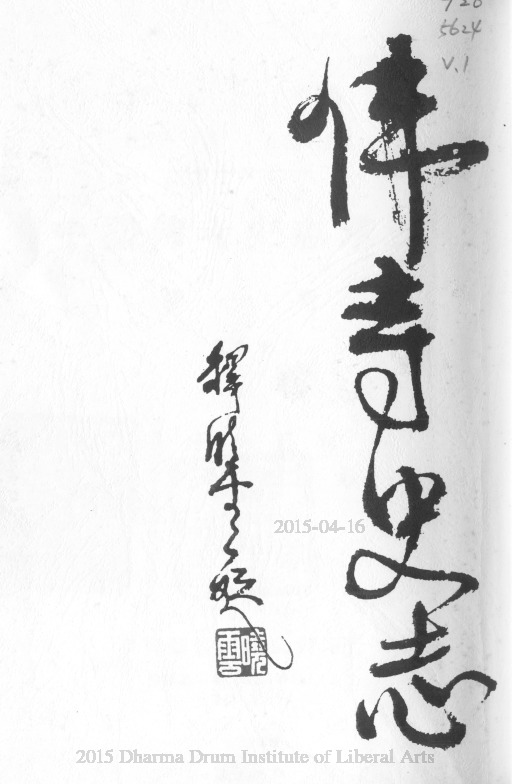 5624
V.1
佛寺史志
釋曉雲題
曉雲
2015-04-16
2015 Dharma Drum Institute of Liberal Arts